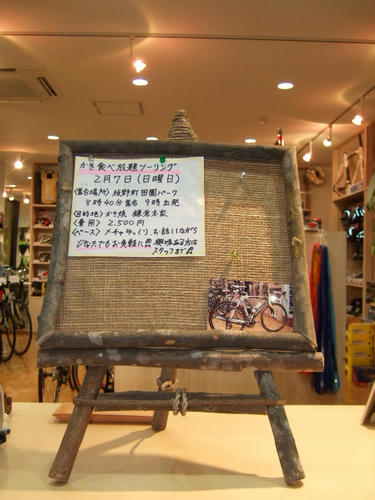 かき食べ放題ツーリング
2月7日(日曜日)
〈集合場所〉板野町田園パーク
8時40分集合 9時出発
〈目的地〉かき焼 鎌倉本家
〈費用〉 2.500円
〈ペース〉メチャゆっくり、お話しながら
どなたでもお気軽に!! 興味ある方は
スタッフまで!!